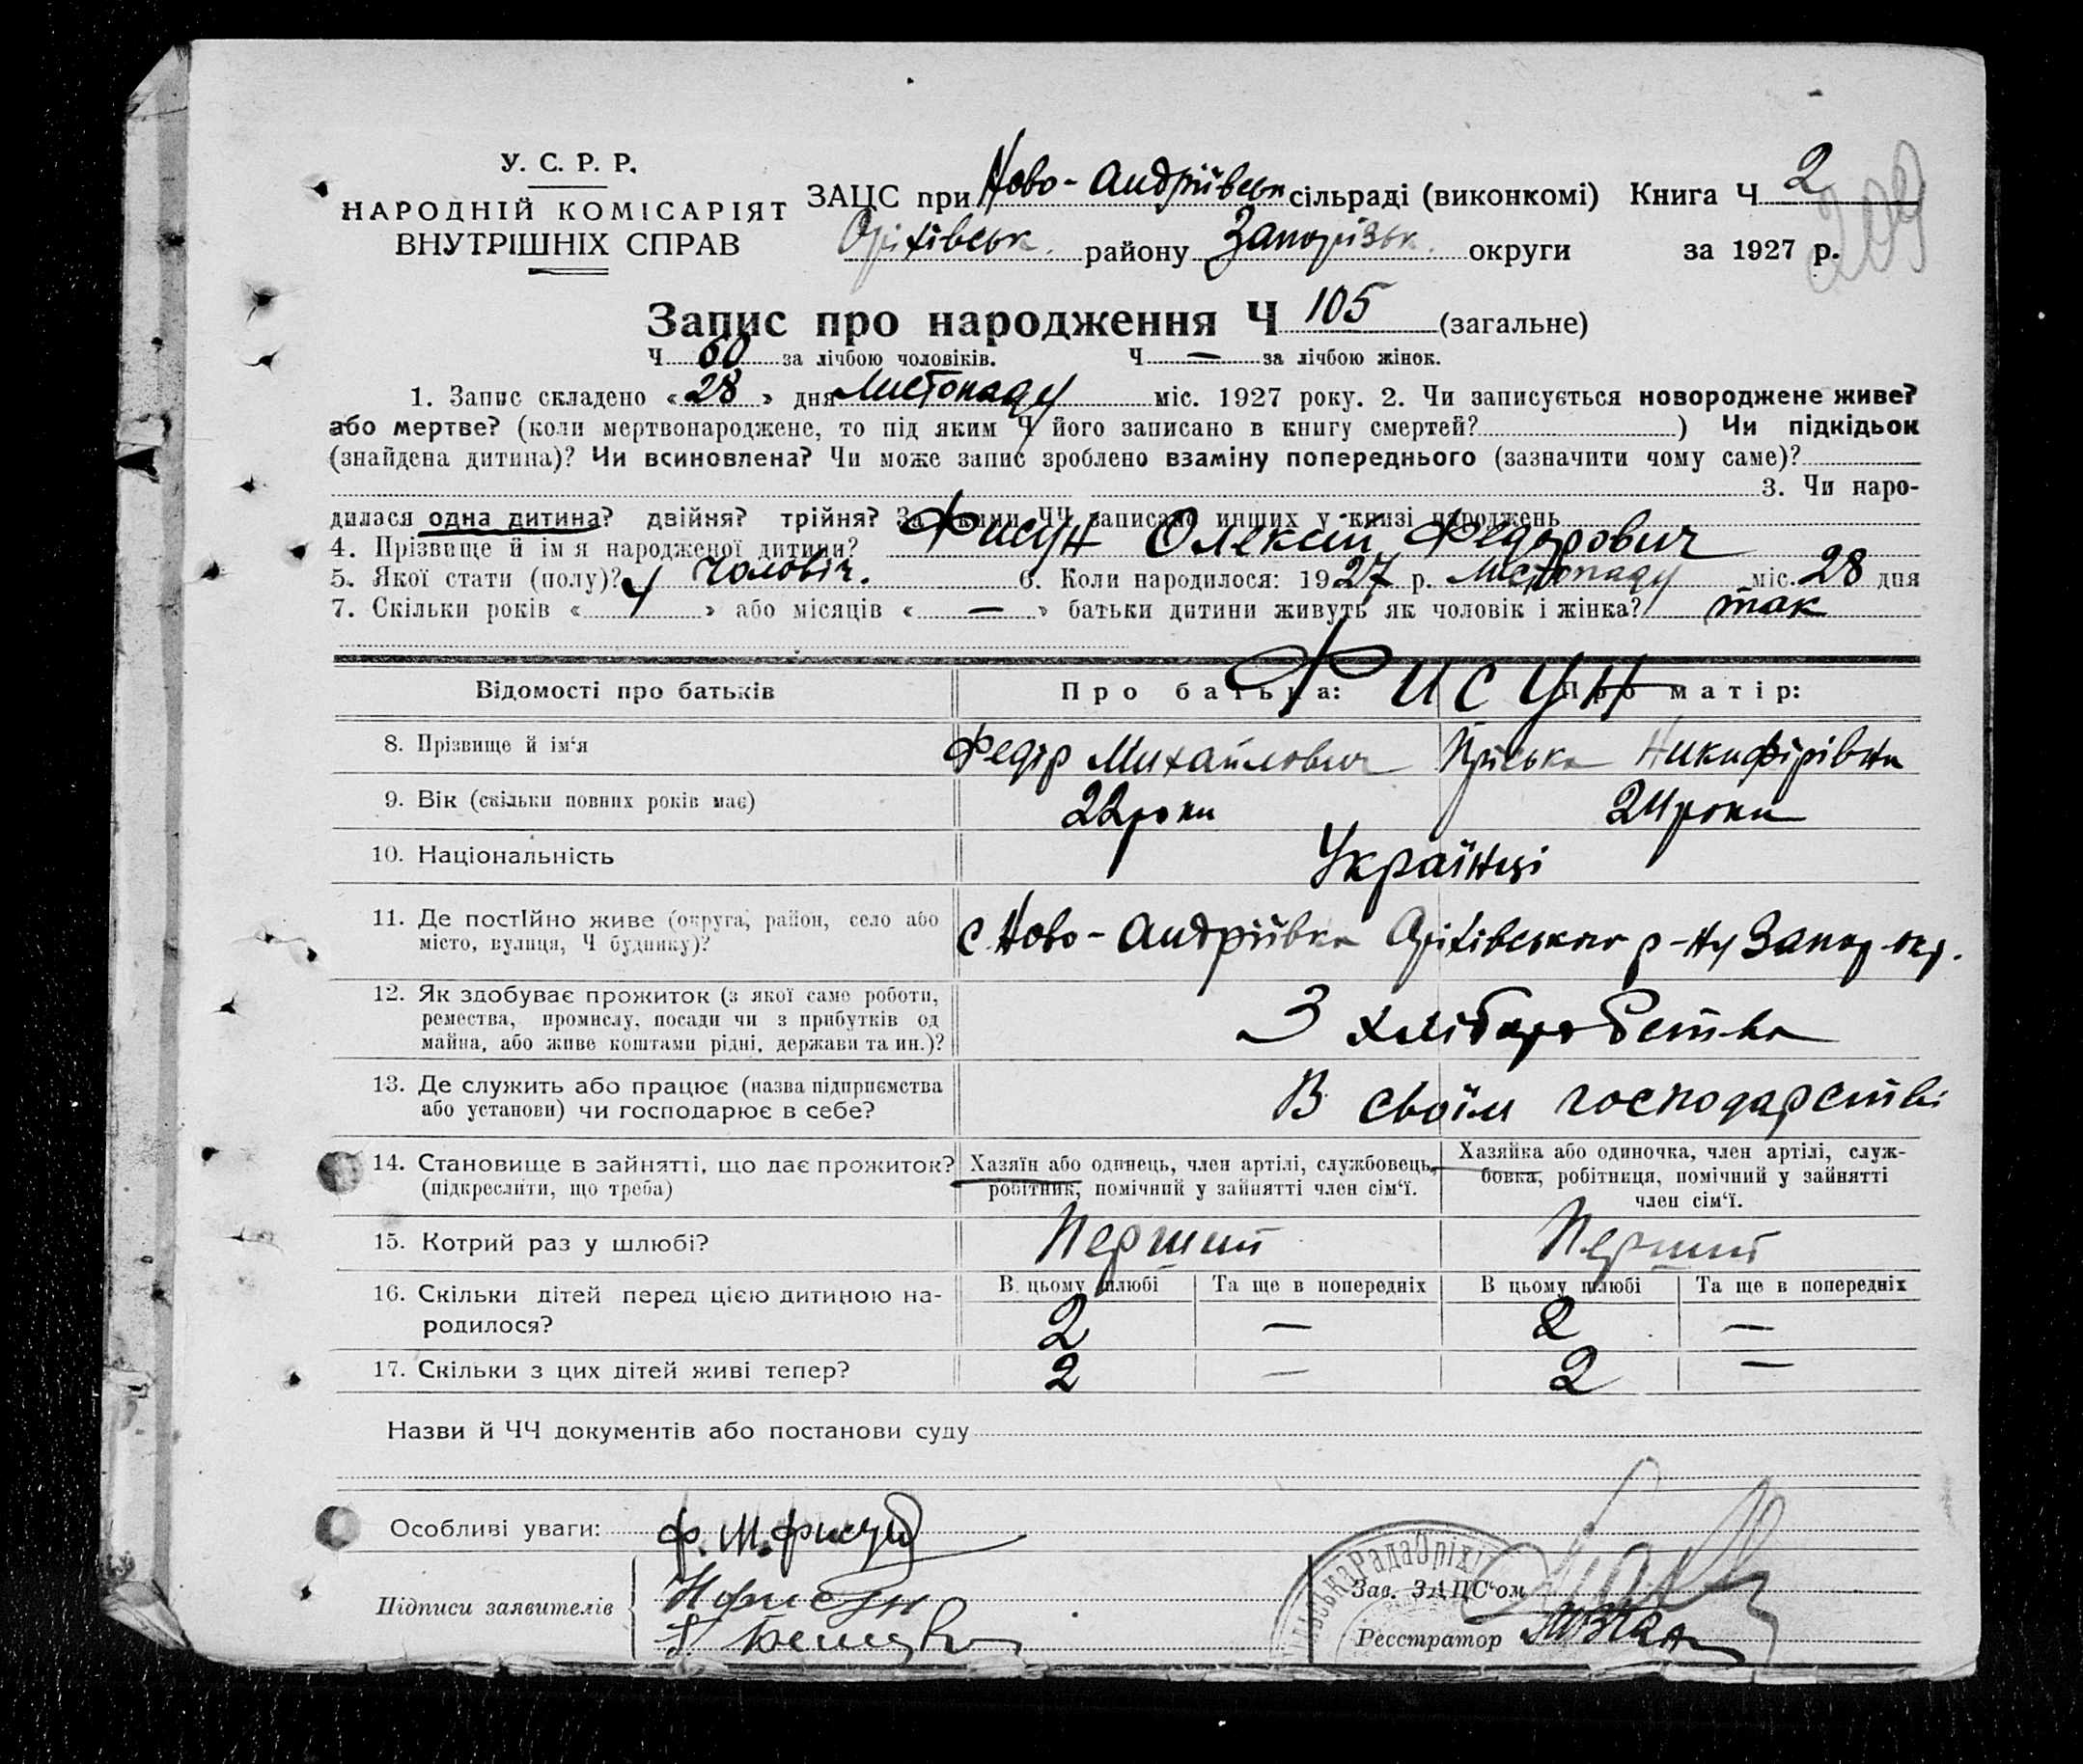 У. С. Р. Р.
НАРОДНІЙ КОМІСАРІЯТ
ВНУТРІШНІХ СПРАВ
ЗАЦС при Ново-Андріївськ сільраді (виконкомі) Книга Ч 2
209
Оріхівськ. району Запорізьк. округи за 1927 р.
Запис про народження Ч 105 (загальне)
Ч 60 за лічбою чоловіків. Ч — за лічбою жінок.
1. Запис складено «28» дня Листопаду міс. 1927 року. 2. Чи записується новороджене живе?
або мертве? (коли мертвонароджене, то під яким Ч його записано в книгу смертей? ) Чи підкідьок
(знайдена дитина)? Чи всиновлена? Чи може запис зроблено взаміну попереднього (зазначити чому саме)?
3. Чи наро-
дилася одна дитина? двійня? трійня? За якими ЧЧ записано инших у книзі народжень
4. Прізвище й ім я народженої дитини? Фисун Олексій Федорович
5. Якої стати (полу)? Чоловіч. 6. Коли народилося: 1927 р. Листопаду міс. 28 дня
7. Скільки років « 4 » або місяців « — » батьки дитини живуть як чоловік і жінка? так
Відомості про батьків Про батька: Про матір:
Фисун
8. Прізвище й ім‘я Федір Михайлович Пріська Никифірівна
9. Вік (скільки повних років має) 22 роки 24 роки
10. Національність Українці
11. Де постійно живе (округа, район, село або
місто, вулиця, Ч будинку)? с Ново-Андріївка Оріхівського р-ну Запор. окр.
12. Як здобуває прожиток (з якої саме роботи,
ремества, промислу, посади чи з прибутків од
майна, або живе коштами рідні, держави та ин.)? З хліборобства
13. Де служить або працює (назва підприємства
або установи) чи господарює в себе? В своїм господарстві
14. Становище в зайнятті, що дає прожиток?
(підкреслити, що треба)
Хазяїн або одинець, член артілі, службовець,
робітник, помічний у зайнятті член сім‘ї.
Хазяйка або одиночка, член артілі, служ-
бовка, робітниця, помічний у зайнятті
член сім‘ї.
15. Котрий раз у шлюбі? Перший Перший
16. Скільки дітей перед цією дитиною на-
родилося?
В цьому шлюбі Та ще в попередніх В цьому шлюбі Та ще в попередніх
2 — 2 —
17. Скільки з цих дітей живі тепер? 2 — 2 —
Назви й ЧЧ документів або постанови суду
Особливі уваги: Ф. М. Фисун
Підписи заявителів
Зав. ЗАЦС‘ом
Реєстратор